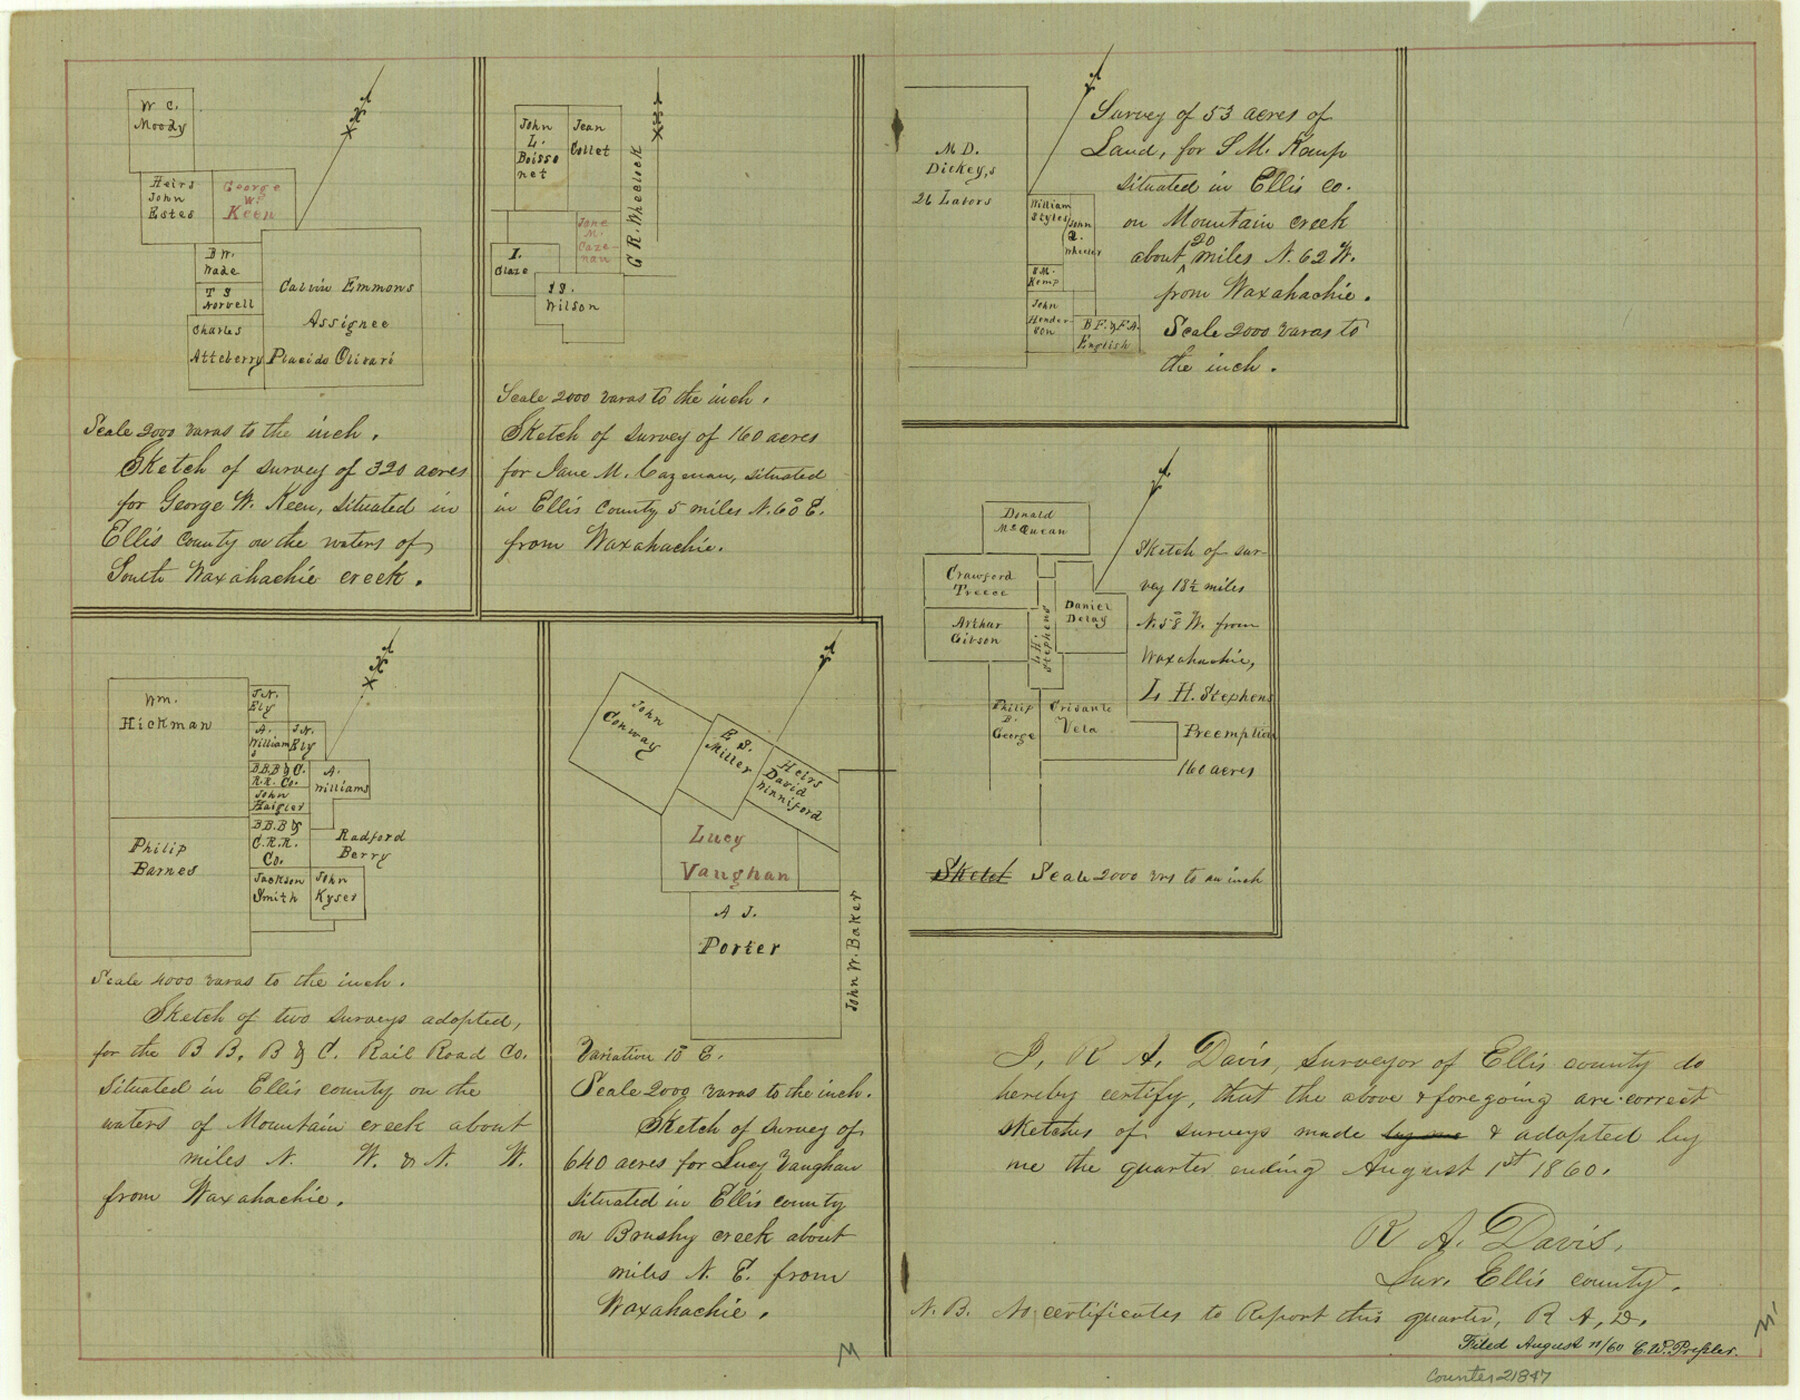 W C.
Moody
Heirs
John
Estes
George
W.
Keen
B W.
Wade
T S
Norvell
Charles
Atteberry
Calvin Emmons
Assignee
Placido Olivari
Scale 2000 varas to the inch.
Sketch of survey of 320 acres
for George W. Keen, situated in
Ellis county on the waters of
South Waxahachie creek.
John
L.
Boisso
net
Jean
Collet
G R. Wheelock
Jane
M.
Caze-
nau
I.
Glaze
J S.
Wilson
Scale 2000 varas to the inch.
Sketch of survey of 160 acres
for Jane M. Cazenau, situated
in Ellis county 5 miles N. 60° E.
from Waxahachie.
M D.
Dickey,s
26 Labors
William
Styles
John
Q.
Wheeler
S M.
Kemp
John
Hender
son
B F. & F A.
English
Survey of 53 acres of
Land, for S M. Kemp
situated in Ellis co.
on Mountain creek
about 20 miles N. 62 W.
from Waxahachie.
Scale 2000 varas to
the inch.
Donald
McQuean
Crawford
Treece
Arthur
Gibson
L H.
Stephens
Daniel
Delay
Philip
B.
George
Crisanto
Vela
Sketch of sur-
vey 18½ miles
N. 58° W. from
Waxahachie,
L H. Stephens
Preemption
160 acres
Sketch Scale 2000 vrs to an inch
Wm.
Hickman
Philip
Barnes
J N.
Ely
A.
William
s
J N.
Ely
B.B.B & C.
R.R. Co.
John
Haigler
B B. B &
C. R. R.
Co.
Jackson
Smith
A.
Williams
Radford
Berry
John
Kyser
Scale 4000 varas to the inch.
Sketch of two surveys adopted,
for the B B, B & C. Rail Road Co.
Situated in Ellis county on the
waters of Mountain creek about
miles N. W. & N. W.
from Waxahachie.
John
Conway
E S.
Miller
Heirs
David
Winniford
Lucy
Vaughan
A J.
Porter
John W. Baker
Variation 10° E.
Scale 2000 varas to the inch.
Sketch of survey of
640 acres for Lucy Vaughan
situated in Ellis county
on Brushy creek about
miles N. E. from
Waxahachie.
I, R A. Davis, surveyor of Ellis county do
hereby certify, that the above & foregoing are correct
sketches of surveys made by me & adopted by
me the quarter ending August 1st 1860.
R A. Davis,
Sur. Ellis county.
N. B. No certificates to Report this quarter, R A, D.
Filed August 11/60 C.W. Pressler.
Counter 21847